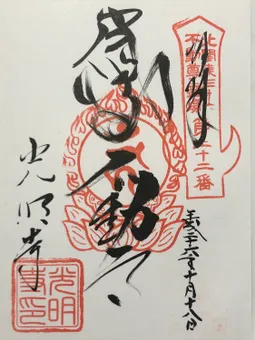 奉拝
北関東三十六
不動尊霊場第二十二番
不動尊
平成二十六年十月十八日
光明寺
光明
寺印